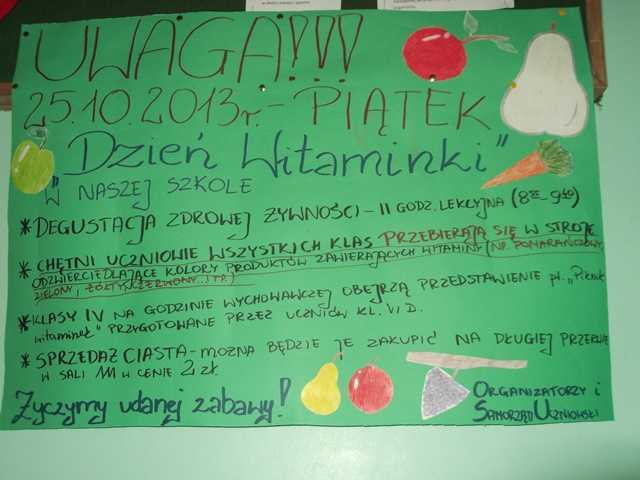 UWAGA!!!!
25.10.2013r. - PIĄTEK
"Dzień Witaminki"
W NASZEJ SZKOLE
* DEGUSTACJA ZDROWEJ ŻYWNOŚCI - II GODZ. LEKCYJNA (8 - 9)
* CHĘTNI UCZNIOWIE WSZYSTKICH KLAS PRZEBIERAJĄ SIĘ W STROJE
ODZWIERCIEDLAJĄCE KOLORY PRODUKTÓW ZAWIERAJĄCYCH WITAMINY (NP. POMARAŃCZOWY,
ZIELONY, ŻÓŁTY, CZERWONY... ITP.)
* KLASY IV NA GODZINIE WYCHOWAWCZEJ OBEJRZĄ PRZEDSTAWIENIE pt. „Piknik
witaminek" PRZYGOTOWANE PRZEZ UCZNIÓW KL. VI D.
* SPRZEDAŻ CIASTA - MOŻNA BĘDZIE JE ZAKUPIĆ NA DŁUGIEJ PRZERWIE
W SALI 111 W CENIE 2 zł
Życzymy udanej zabawy!
ORGANIZATORZY i
SAMORZĄD UCZNIOWSKI